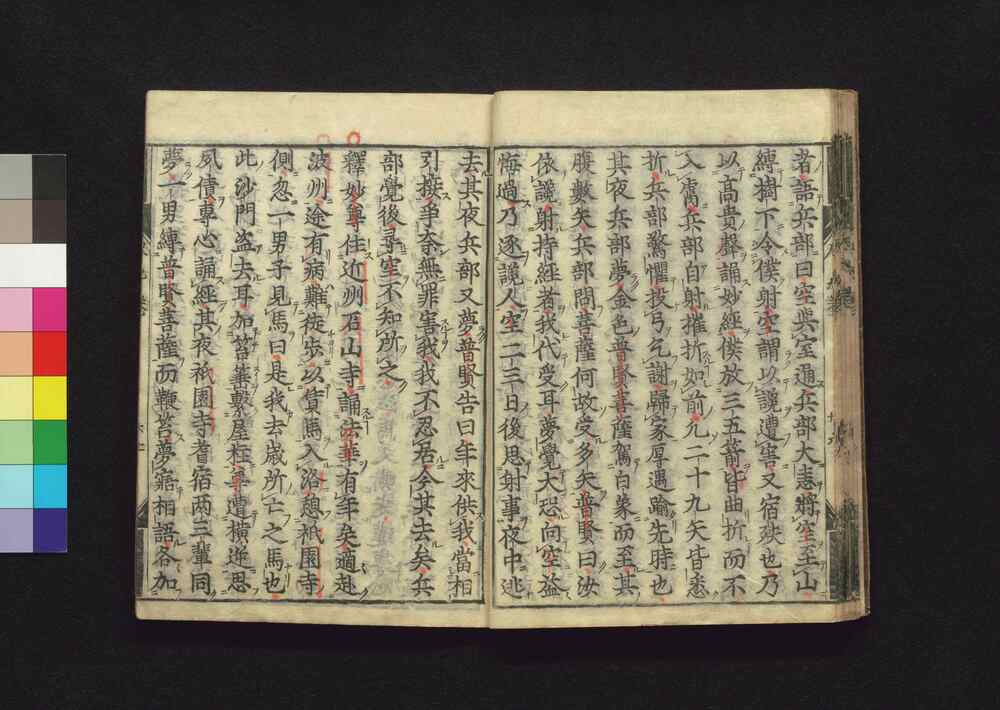 者語兵部曰空與室通兵部大恚將空至山
縛樹下令僕射空謂以讒遭害又宿殃也乃
以高貴聲誦妙經僕放三五箭皆曲折而不
入膚兵部自射摧折如前凡二十九矢皆悉
折兵部驚懼投弓乞謝歸家厚遇踰先時也
其夜兵部夢金色普賢菩薩駕白象而至其
腹數矢兵部問菩薩何故受多矢普賢曰汝
依讒射持經者我代受耳夢覺大恐向空益
悔過乃逐讒人空二三日後思射事夜中逃
去其夜兵部又夢普賢告曰年來供我當相
引摂爭奈無罪害我我不忍居今其去矣兵
部覺後尋空不知所之
釋妙尊住近州石山寺誦法華有年矣適赴
波州途有病難徒步以賃馬入洛憩祇園寺
側忽一男子見馬曰是我去歲所亡之馬也
此沙門盗去耳加笞箠繫屋柱尊遭橫逆思
夙債專心誦經其夜祇園寺耆宿兩三輩同
夢一男縛普賢菩薩而鞭笞夢寤相語各加